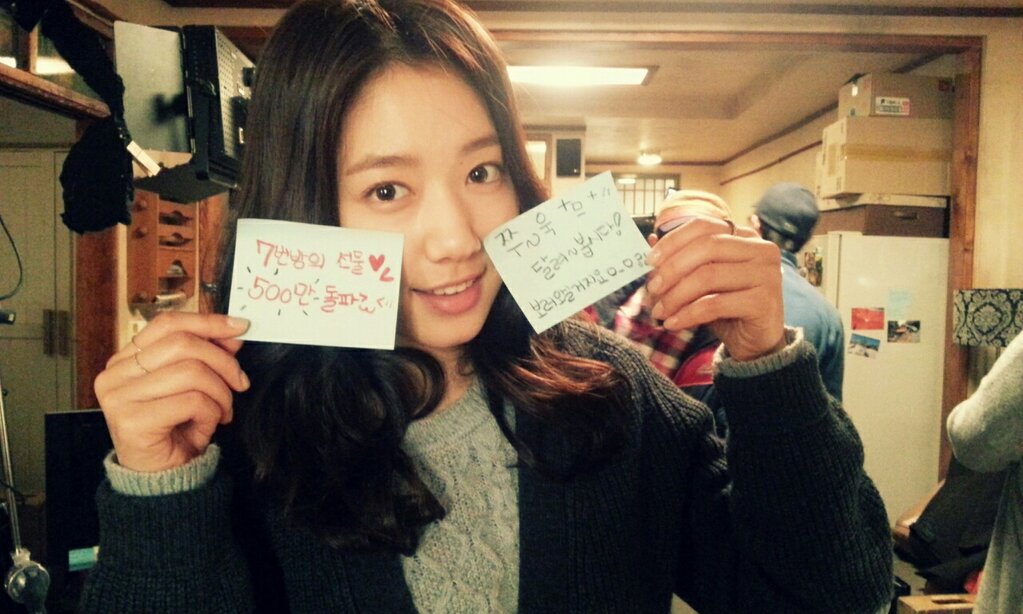 7번방의 선물♥
500만 돌파
쭈~욱 +ㅁ+
달려~봅시다!
보러오실거지요 0_0